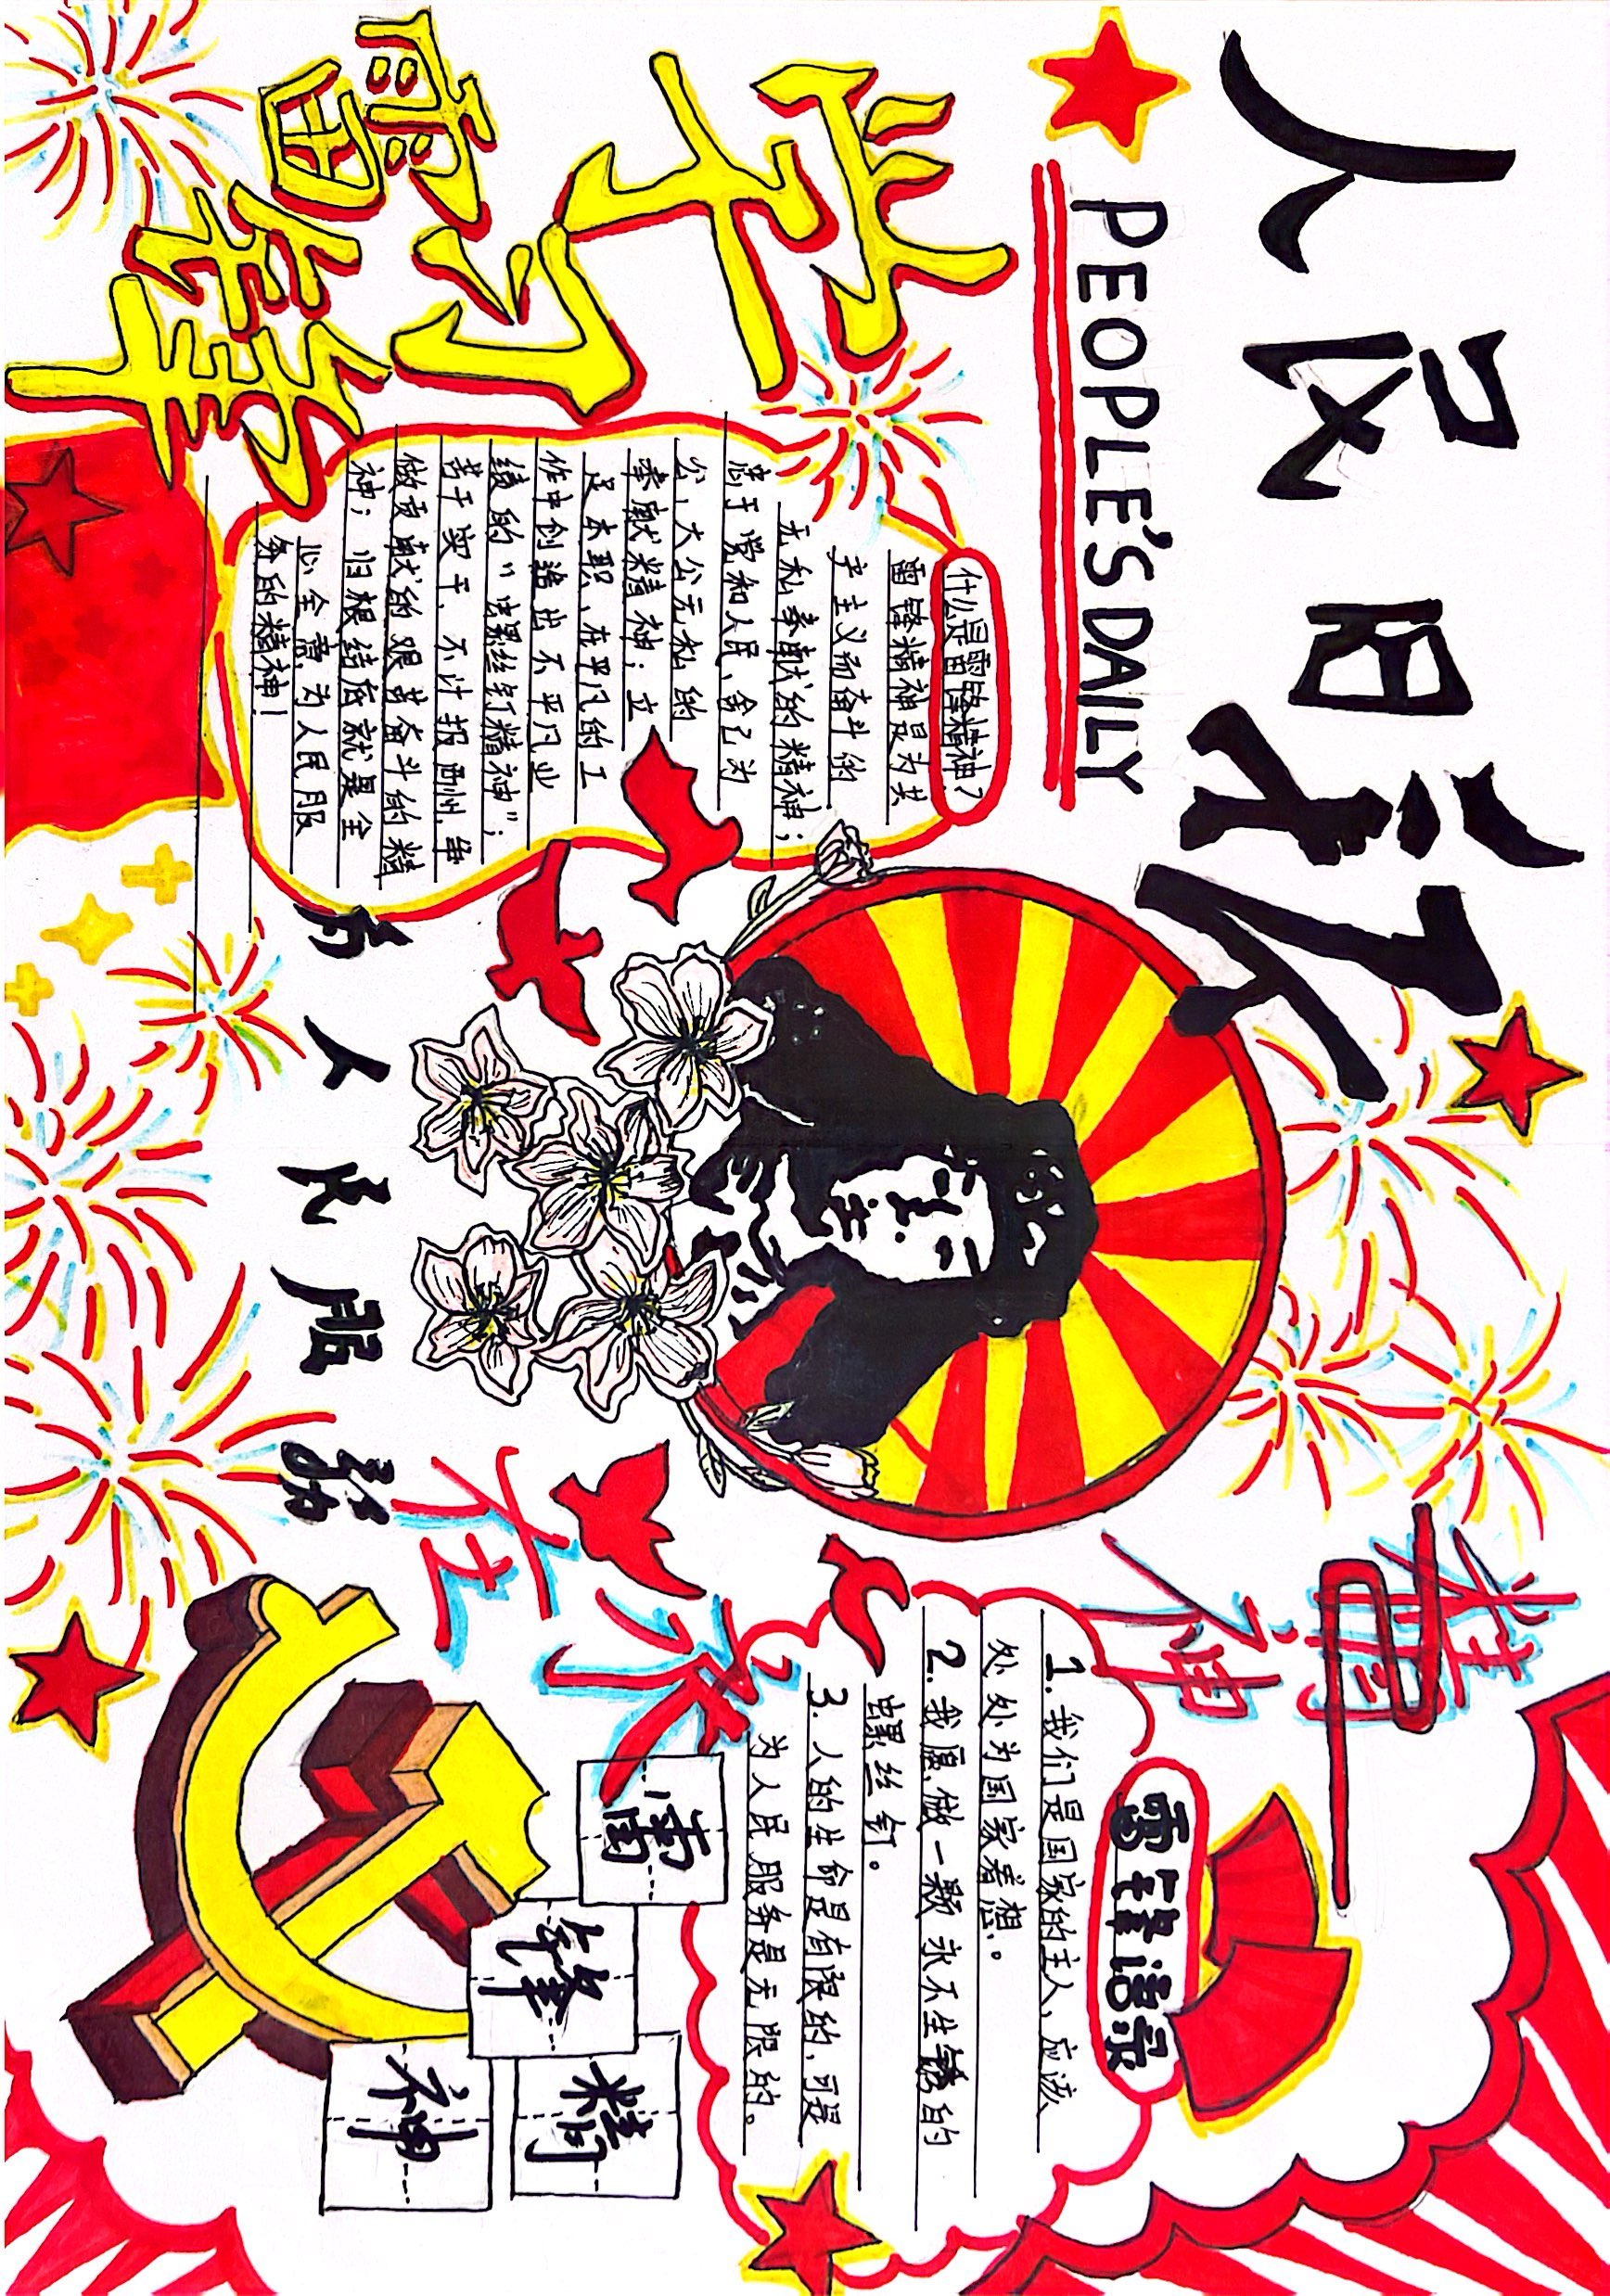 人民日报
PEOPLE'S DAILY
学习
雷锋
什么是雷锋精神?
雷锋精神是为共
产主义而奋斗的
无私奉献的精神;
忠于党和人民、舍己为
公、大公无私的
奉献精神;立
足本职、在平凡的工
作中创造出不平凡业
绩的“螺丝钉精神”;
苦于实干、不计报酬、争
做贡献的艰苦奋斗的精
神;归根结底就是全
心全意为人民服
务的精神!
为人民服务
精神
雷锋语录
1.我们是国家的主人,应该
处处为国家着想。
2.我愿做一颗永不生锈的
螺丝钉。
3.人的生命是有限的,可是
为人民服务是无限的。
雷
锋
精
神